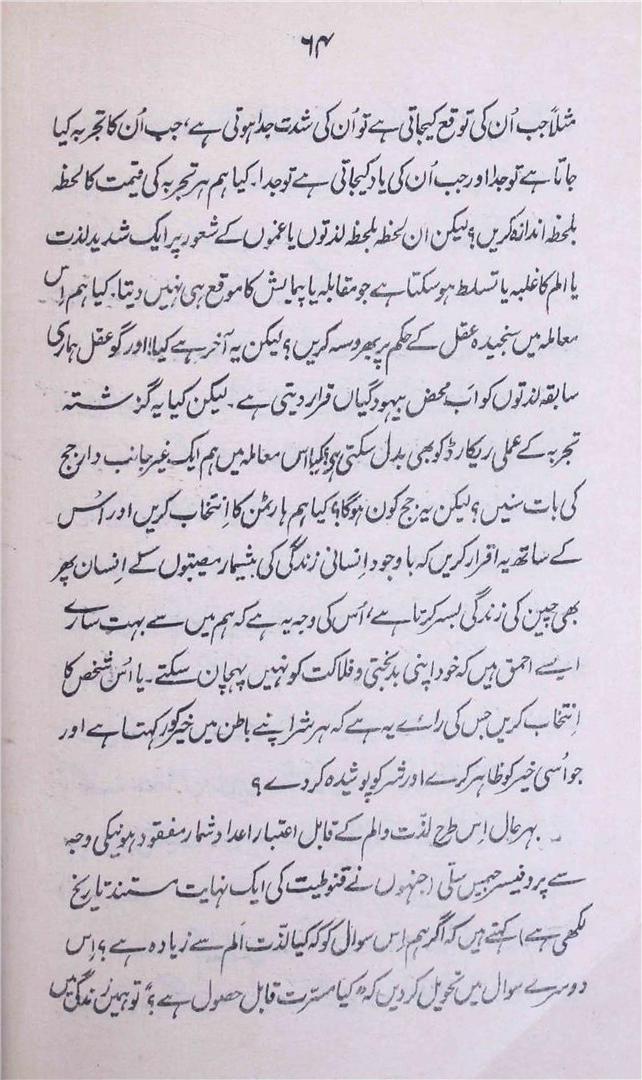 ۶۴
مثلاً جب اُن کی توقع کیجاتی ہے تو اُن کی شدت جدا ہوتی ہے، جب اُن کا تجربہ کیا
جاتا ہے تو جدا اور جب اُن کی یاد کیجاتی ہے تو جدا۔ کیا ہم ہر تجربہ کی قیمت کا لحظہ
بلحظہ اندازہ کریں؟ لیکن ان لحظہ بلحظہ لذتوں یا غموں کے شعور پر ایک شدید لذت
یا الم کا غلبہ یا تسلط ہو سکتا ہے جو مقابلہ یا پیمایش کا موقع ہی نہیں دیتا۔ کیا ہم اِس
معاملہ میں سنجیدہ عقل کے حکم پر بھروسہ کریں؟ لیکن یہ آخر ہے کیا! اور گو عقل ہماری
سابقہ لذتوں کو اب محض بیہودگیاں قرار دیتی ہے۔ لیکن کیا یہ گزشتہ
تجربہ کے عملی ریکارڈ کو بھی بدل سکتی ہے؟ کیا اس معاملہ میں ہم ایک غیر جانب دار جج
کی بات سنیں؟ لیکن یہ جج کون ہوگا؟ کیا ہم ہارٹمن کا اِنتخاب کریں اور اُس
کے ساتھ یہ اقرار کریں کہ باوجود اِنسانی زندگی کی بیشمار مصیبتوں کے اِنسان پھر
بھی چین کی زندگی بسر کرتا ہے، اُس کی وجہ یہ ہے کہ ہم میں سے بہت سارے
ایسے احمق ہیں کہ خود اپنی بدبختی و فلاکت کو نہیں پہچان سکتے۔ یا اُس شخص کا
اِنتخاب کریں جس کی رائے یہ ہے کہ ہر شر اپنے باطن میں خیر کو رکھتا ہے اور
جو اُسی خیر کو ظاہر کرے اور شر کو پوشیدہ کر دے؟
بہر حال اِس طرح لذّت و الم کے قابل اعتبار اعداد شمار مفقود ہونیکی وجہ
سے پروفیسر جیمس سلی (جنہوں نے قنوطیت کی ایک نہایت مستند تاریخ
لکھی ہے) کہتے ہیں کہ اگر ہم اِس سوال کو کہ کیا لذّت اَلم سے زیادہ ہے؟ اِس
دوسرے سوال میں تحویل کر دیں کہ "کیا مسرت قابل حصول ہے؟" تو ہمیں زندگی میں